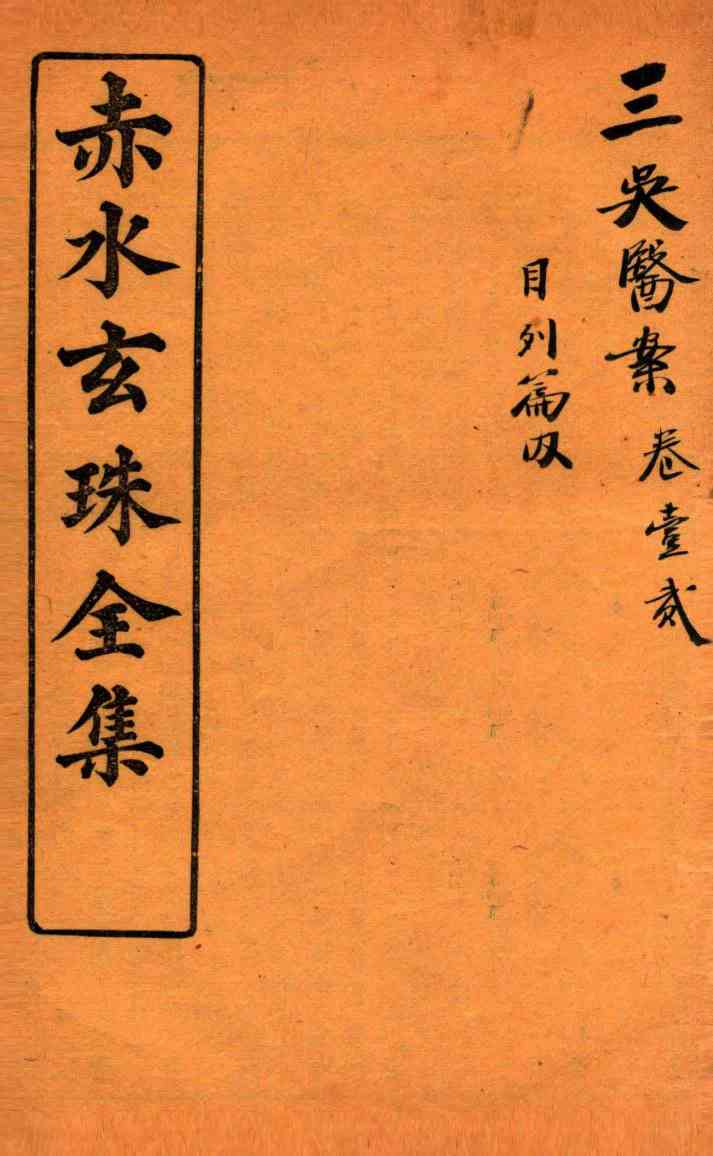 三吳醫案 卷壹貳
目列篇内
赤水玄珠全集